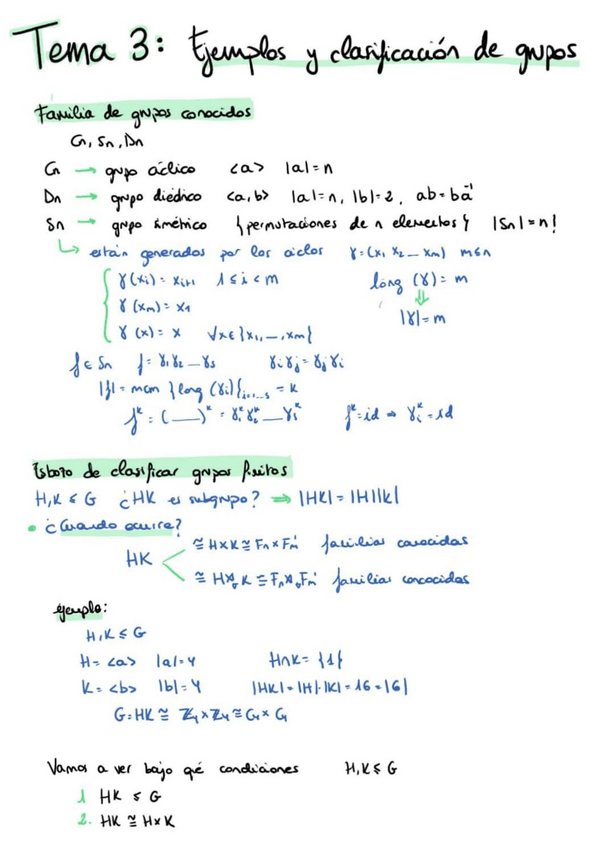 Tema 3: Ejemplos y clasificación de grupos
Familia de grupos conocidos
Cn, Sn, Dn
Cn → grupo cíclico <a> |a|=n
Dn → grupo diédrico <a,b> |a|=n, |b|=2, ab=ba⁻¹
Sn → grupo simétrico {permutaciones de n elementos} |Sn|=n!
↳ están generados por los ciclos γ=(x₁ x₂ _ xm) m≤n
γ(xi) = xi+1 1≤i<m long (γ)=m
γ(xm) = x₁ ⇓
γ(x) = x ∀x∈{x₁,_,xm} |γ|=m
f∈Sn f=γ₁γ₂_γs γiγj=γjγi
|f|=mcm {long (γi)}i=1,..,s = k
fᵏ=(__)ᵏ=γ₁ᵏγ₂ᵏ_γsᵏ fᵏ=id ⇒ γiᵏ=id
Esbozo de clasificar grupos finitos
H,K ≤ G ¿HK es subgrupo? ⇒ |HK|=|H||K|
• ¿Cuando ocurre?
≅ H×K ≅ Fn×Fm' familias conocidas
HK
≅ H⋊K ≅ Fn⋊Fm' familias concocidas
ejemplo:
H,K ≤ G
H=<a> |a|=4 H∩K={1}
K=<b> |b|=4 |HK|=|H|·|K|=16=|G|
G=HK ≅ Z₄×Z₄ ≅ C₄×C₄
Vamos a ver bajo qé condiciones H,K≤G
1 HK ≤ G
2. HK ≅ H×K